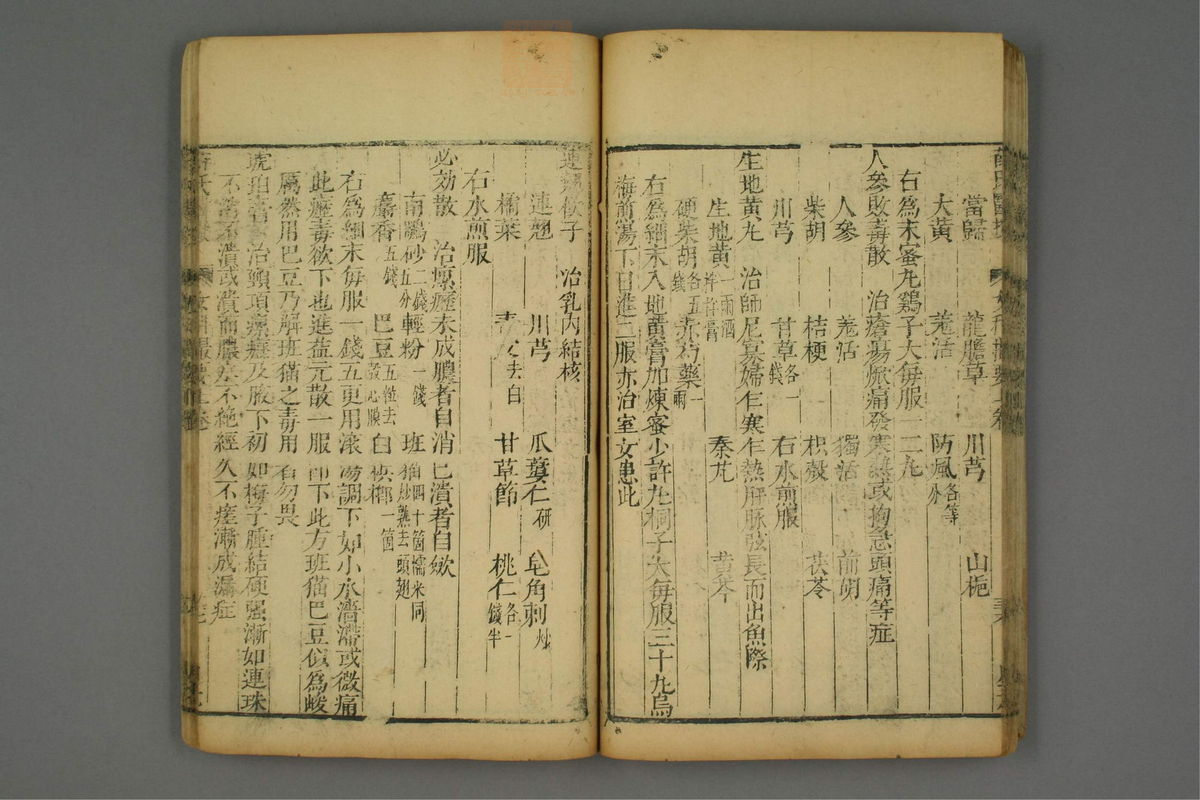 當歸 龍膽草 川芎 山梔
大黃 羗活 防風各等分
右為末蜜丸鷄子大每服一二丸
人參敗毒散 治瘡瘍焮痛發寒熱或拘急頭痛等症
人參 羗活 獨活 前胡
柴胡 桔梗 枳殼 茯苓
川芎 甘草各一錢 右水煎服
生地黃丸 治師尼寡婦乍寒乍熱肝脉弦長而出魚際
生地黃一兩酒拌杵膏 秦艽 黃芩
硬柴胡各五錢 赤芍藥一兩
右為細末入地黃膏加煉蜜少許丸桐子大每服三十丸烏
梅煎湯下日進二服亦治室女患此
連翹飲子 治乳內結核
連翹 川芎 瓜蔞仁研 皂角刺炒
橘葉 青皮去白 甘草節 桃仁各一錢半
右水煎服
必効散 治瘰癧未成膿者自消已潰者自斂
南鵬砂二錢五分 輕粉一錢 班猫四十箇糯米同炒熟去頭翅
麝香五錢 巴豆五粒去殼心膜 白檳榔一箇
右為細末每服一錢五更用滚湯調下如小水澁滯或微痛
此癧毒欲下也進益元散一服即下此方班猫巴豆似為峻
厲然用巴豆乃解班猫之毒用者勿畏
琥珀膏 治頸項瘰癧及腋下初如梅子腫結硬强漸如連珠
不消不潰或潰而膿水不絶經久不瘥漸成漏症